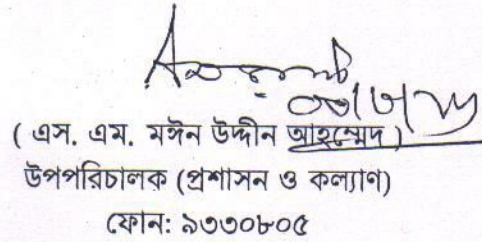 ( এস. এম. মঈন উদ্দীন আহম্মেদ )
উপপরিচালক (প্রশাসন ও কল্যাণ)
ফোন: ৯৩৩০৮০৫